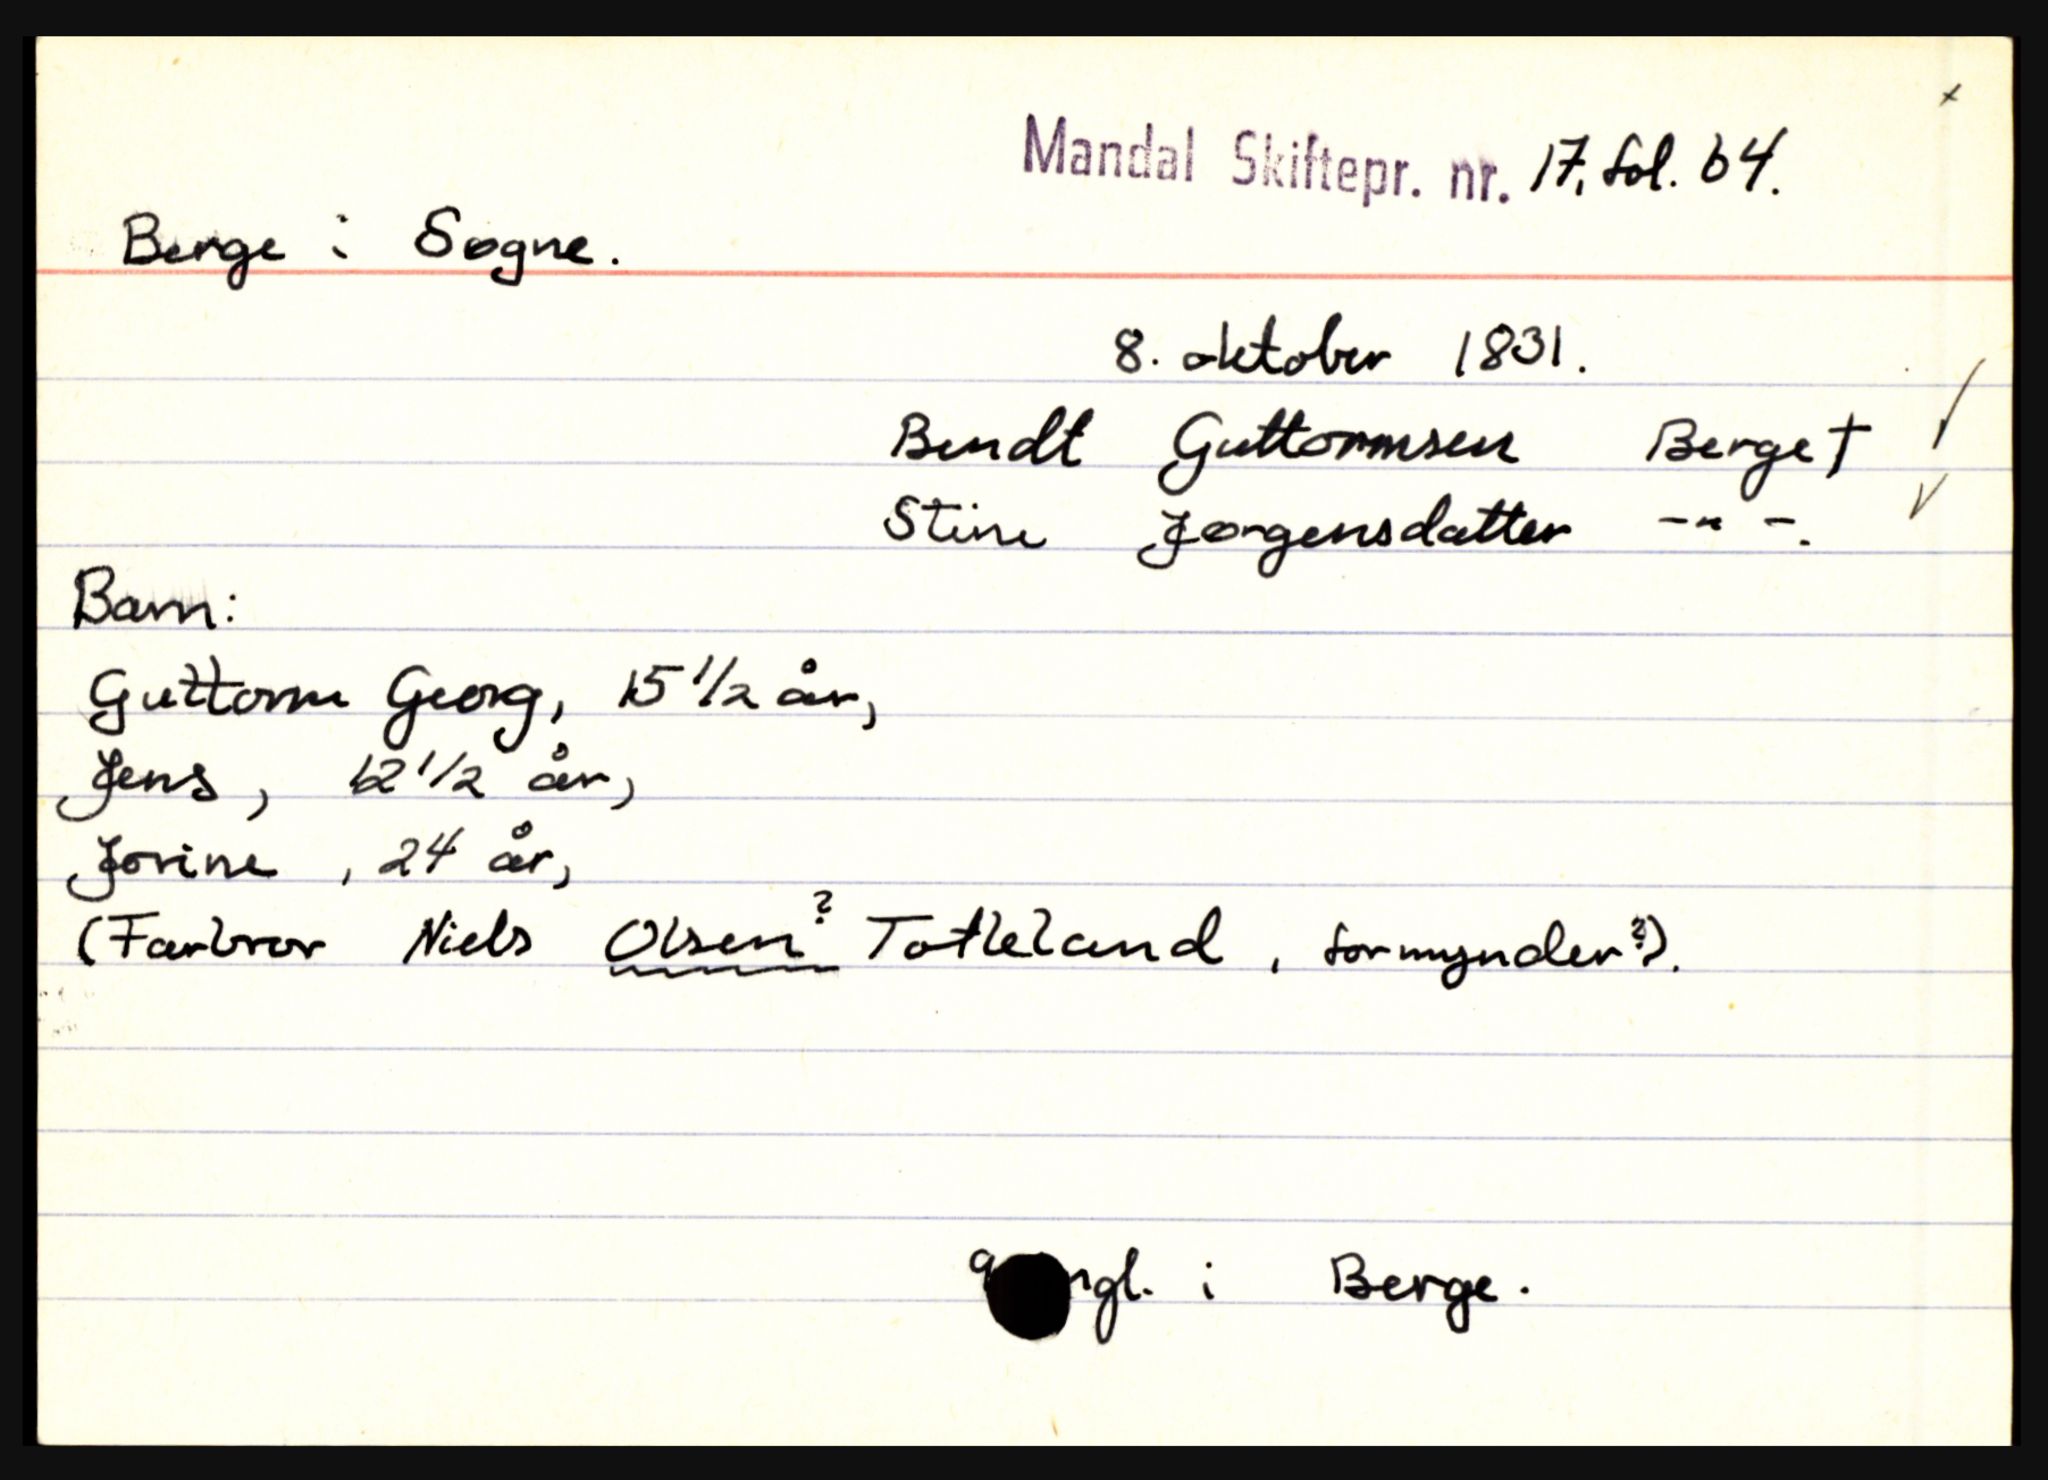 Mandal Skiftepr. nr. 17, fol. 64.
Berge i Søgne.
8. oktober 1831.
Bendt Guttormsen Berge †
Stine Jørgensdatter -"-.
Barn:
Guttorm Georg, 15 1/2 år,
Jens, 12 1/2 år,
Jorine, 24 år,
(Farbror Niels Olsen? Tofteland, formynder?).
i Berge.